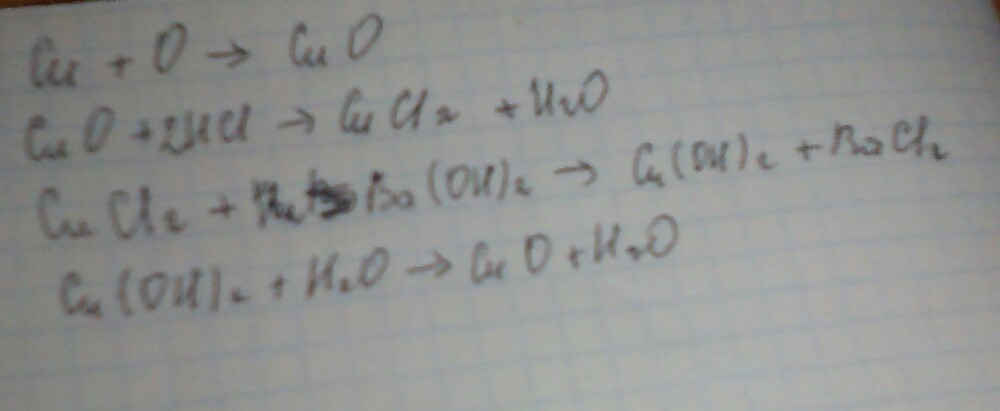 Cu + O → CuO
CuO + 2HCl → CuCl₂ + H₂O
CuCl₂ + Ba(OH)₂ → Cu(OH)₂ + BaCl₂
Cu(OH)₂ + H₂O → CuO + H₂O